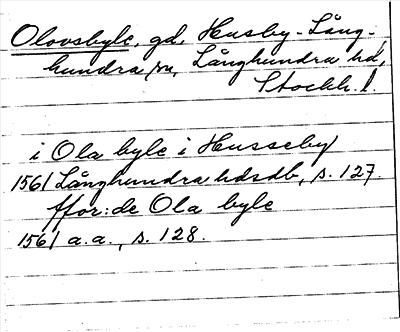 Olovsbyle, gd, Husby-Lång-
hundra sn, Långhundra hd,
Stockh. l.
i Ola byle i Husseby
1561 Långhundra hdsdb, s. 127.
ffor:de Ola byle
1561 a.a., s. 128.